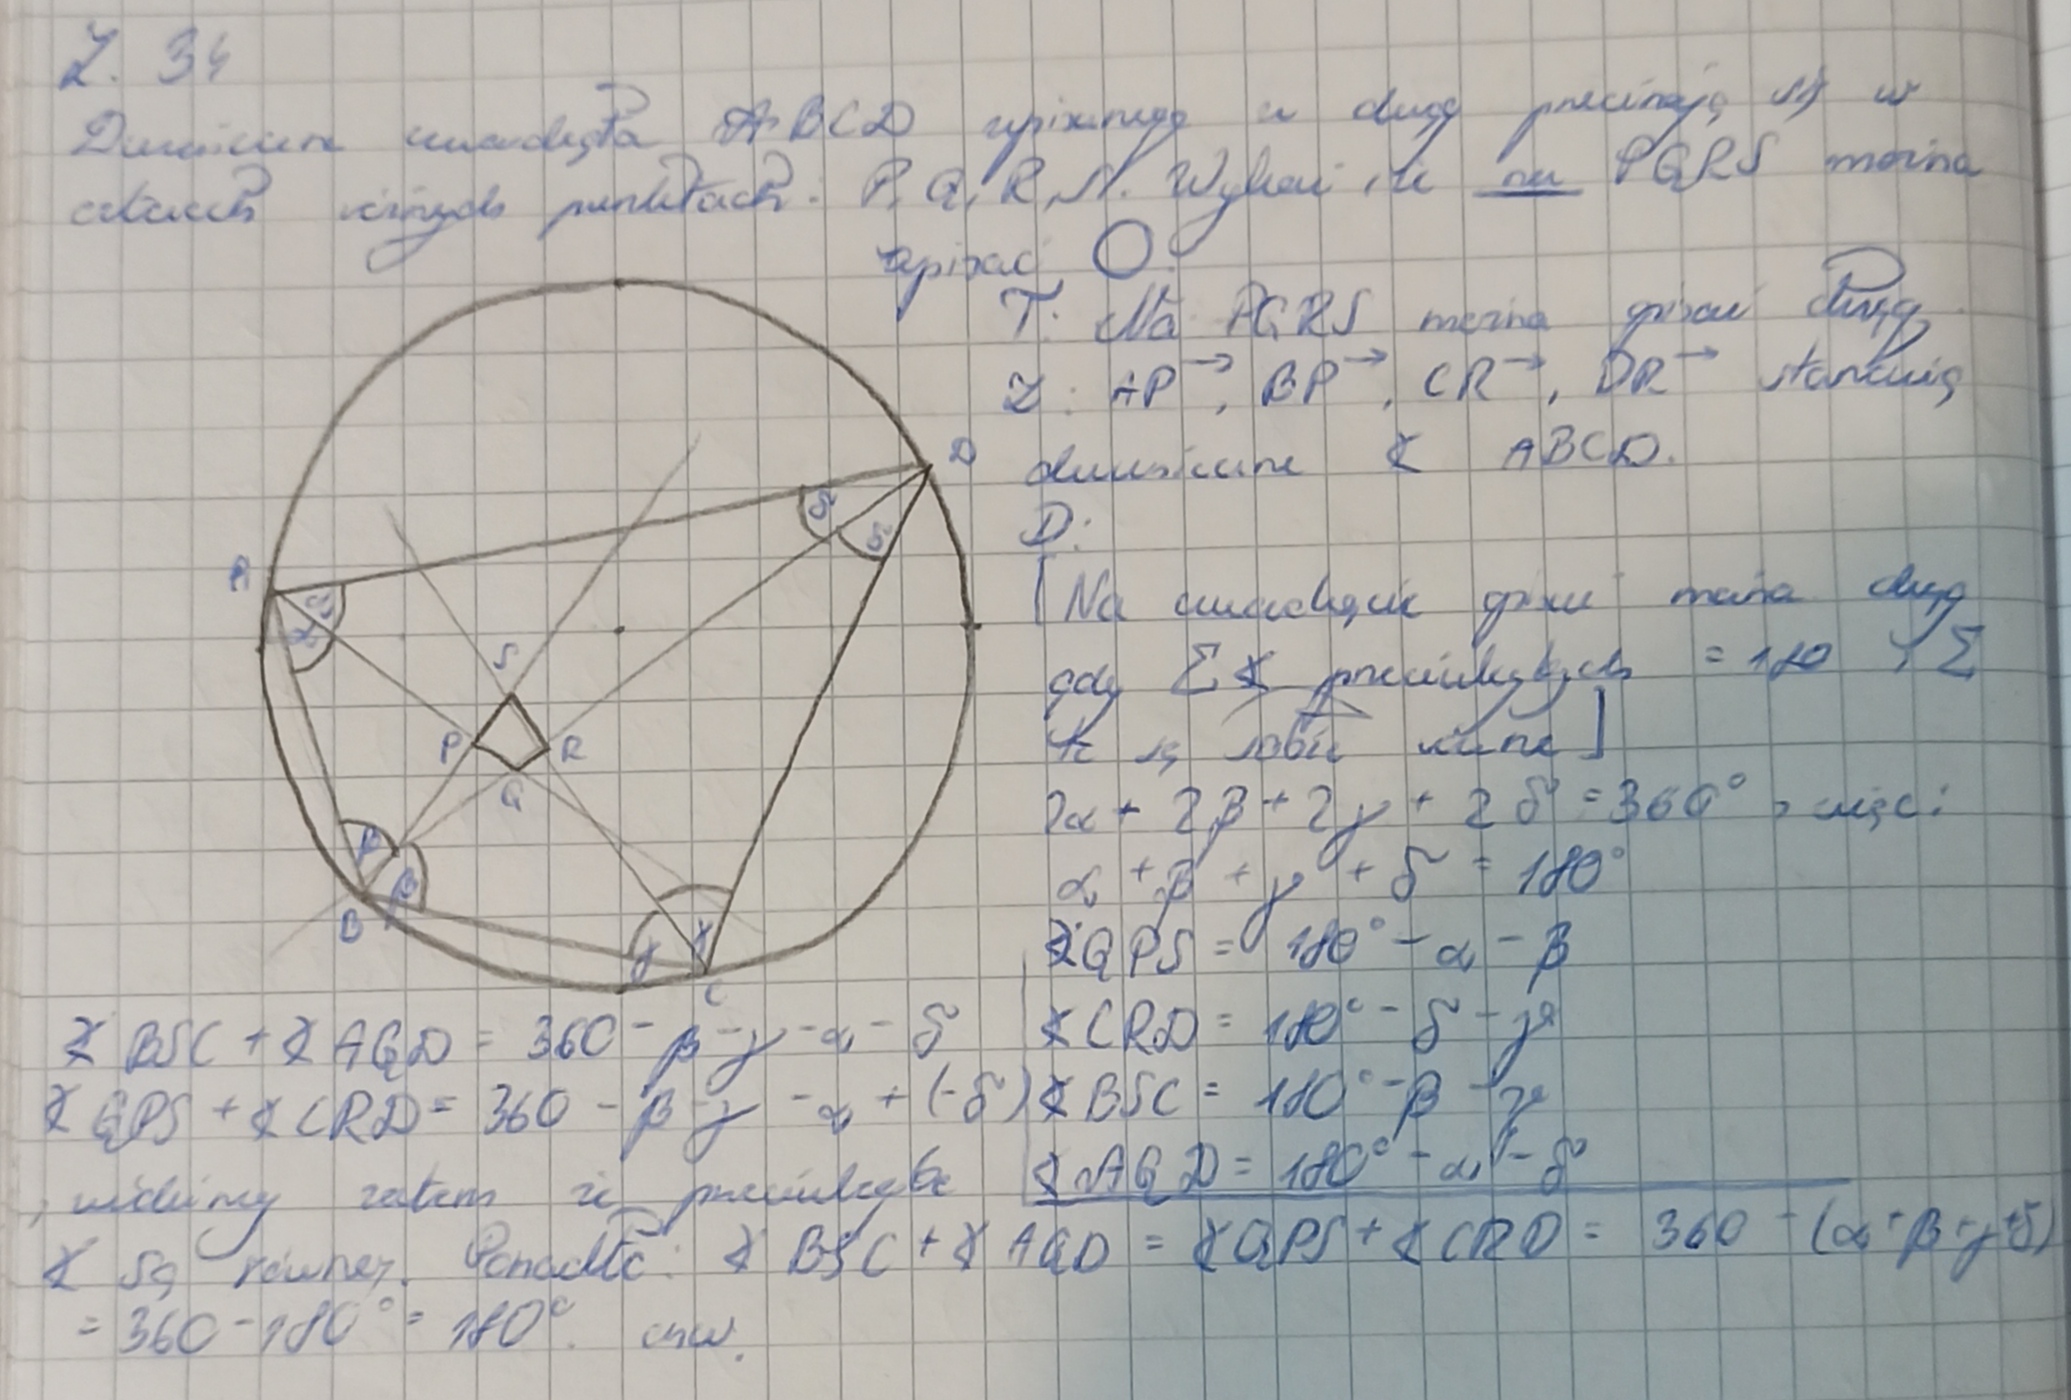 Z. 34
Dwusieczne czworokąta ABCD wpisanego w okrąg przecinają się w
czterech różnych punktach: P, Q, R, S. Wykaż, że na PQRS można
opisać ◯.
T: Na PQRS można opisać okrąg
Z: AP→, BP→, CR→, DR→ stanowią
dwusieczne ∢ ABCD.
D:
[Na czworokącie opisać można okrąg
gdy Σ∢ przeciwległych = 180 i Σ
te są sobie równe]
2α + 2β + 2γ + 2δ = 360°, więc:
α + β + γ + δ = 180°
∢QPS = 180° - α - β
∢CRD = 180° - δ - γ
∢BSC = 180° - β - γ
∢AQD = 180° - α - δ
∢BSC + ∢AQD = 360 - β - γ - α - δ
∢QPS + ∢CRD = 360 - β - γ - α + (-δ)
, widzimy zatem że przeciwległe
∢ są równe. Ponadto: ∢BSC + ∢AQD = ∢QPS + ∢CRD = 360 - (α + β + γ + δ)
= 360 - 180° = 180°. cnw.
A
D
δ
δ
α
α
S
P
R
Q
β
β
B
γ
γ
C